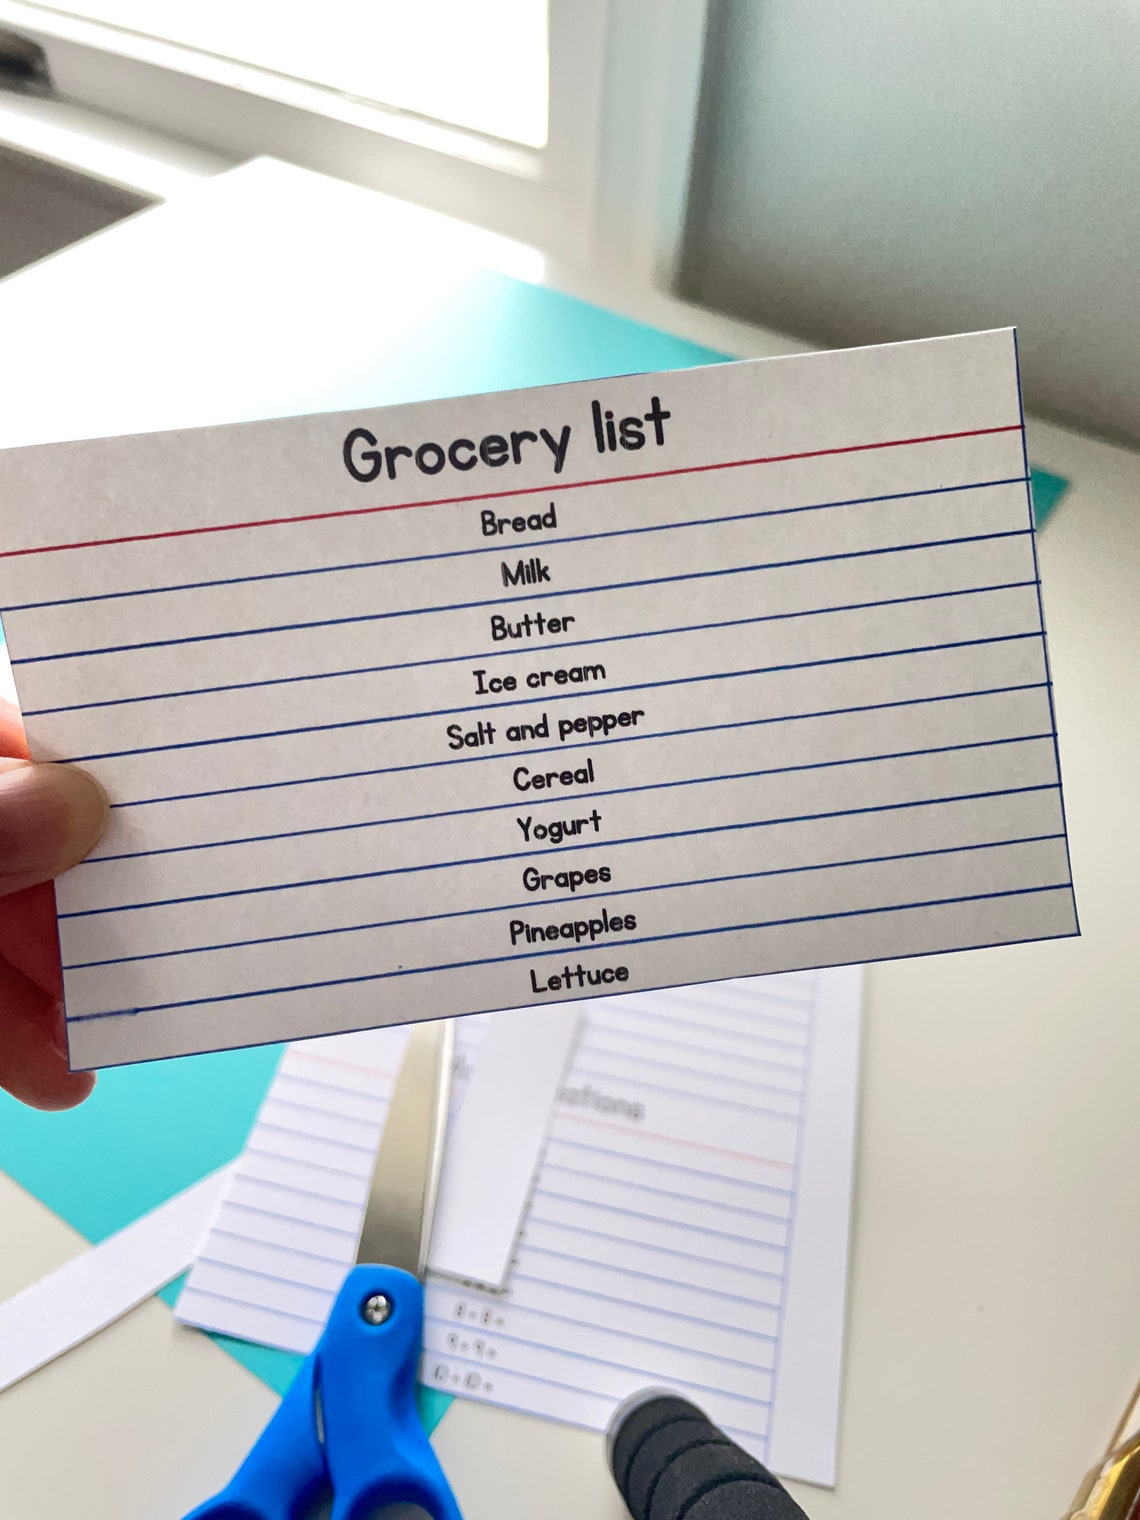 Grocery list
Bread
Milk
Butter
Ice cream
Salt and pepper
Cereal
Yogurt
Grapes
Pineapples
Lettuce